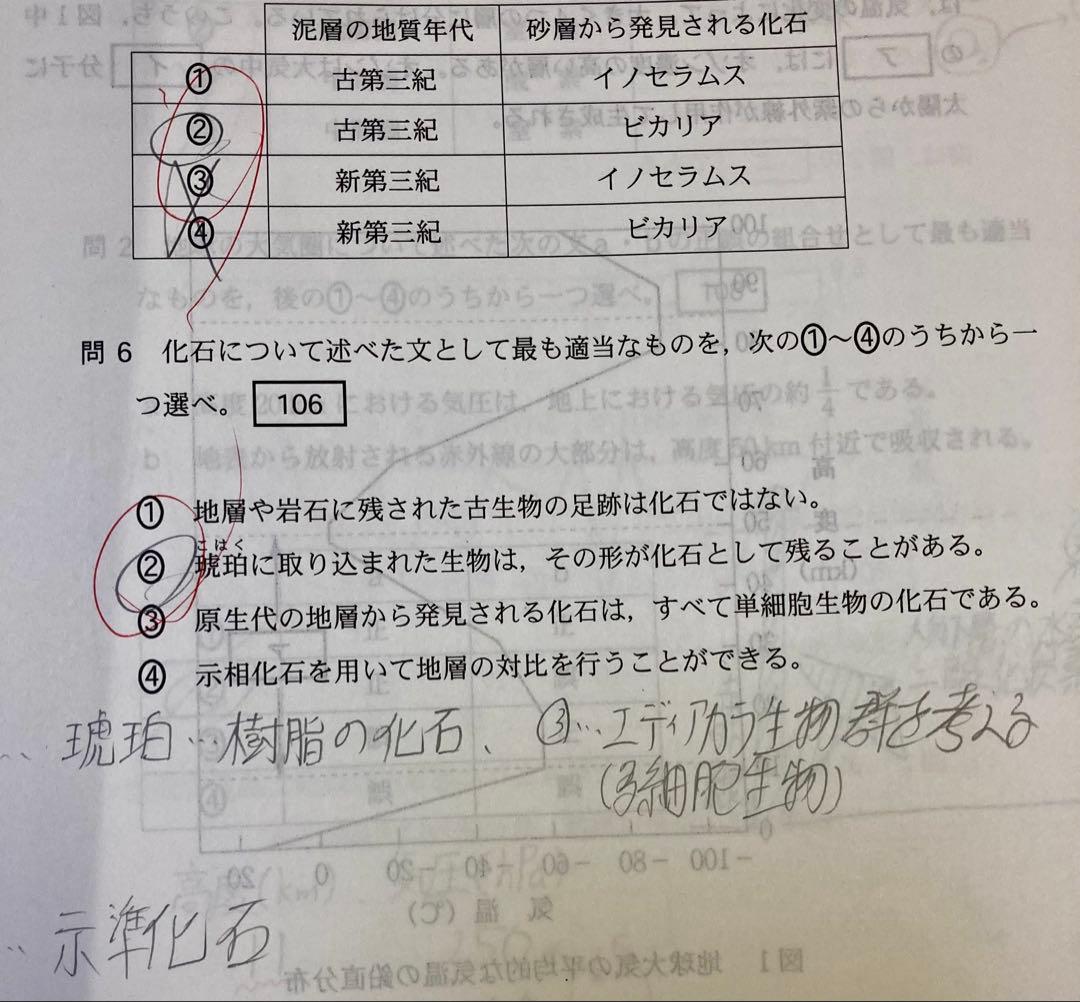 泥層の地質年代 砂層から発見される化石
① 古第三紀 イノセラムス
② 古第三紀 ビカリア
③ 新第三紀 イノセラムス
④ 新第三紀 ビカリア
問6 化石について述べた文として最も適当なものを,次の①~④のうちから一
つ選べ。 106
① 地層や岩石に残された古生物の足跡は化石ではない。
こはく
② 琥珀に取り込まれた生物は,その形が化石として残ることがある。
③ 原生代の地層から発見される化石は,すべて単細胞生物の化石である。
④ 示相化石を用いて地層の対比を行うことができる。
琥珀…樹脂の化石、③…エディアカラ生物群を考える
(多細胞生物)
示準化石